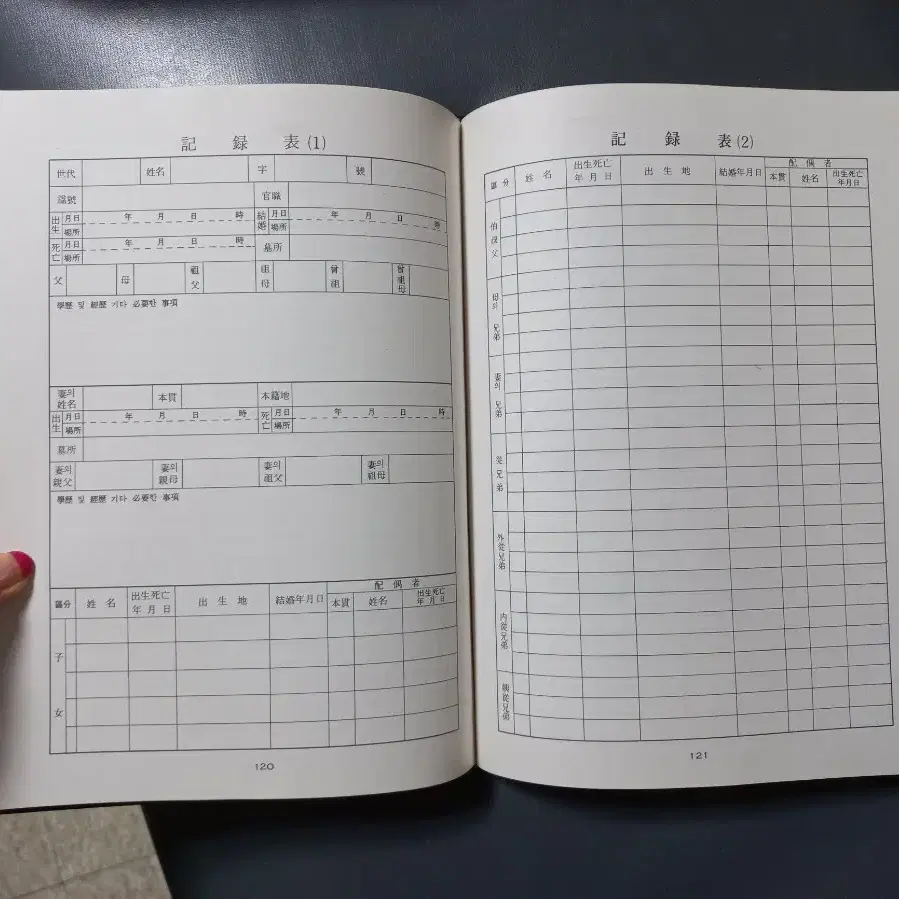 記錄表(1)
世代 姓名 字 號
諡號 官職
出生 月日 年 月 日 時 結婚 月日 年 月 日 時
場所 場所
死亡 月日 年 月 日 時 墓所
場所
父 母 祖父 祖母 曾祖 曾祖母
學歷 및 經歷 기타 必要한 事項
妻의 姓名 本貫 本籍地
出生 月日 年 月 日 時 死亡 月日 年 月 日 時
場所 場所
墓所
妻의 親父 妻의 親母 妻의 祖父 妻의 祖母
學歷 및 經歷 기타 必要한 事項
區分 姓名 出生死亡 年月日 出生地 結婚年月日 配偶者
本貫 姓名 出生死亡 年月日
子
女
120
記錄表(2)
區分 姓名 出生死亡 年月日 出生地 結婚年月日 配偶者
本貫 姓名 出生死亡 年月日
伯叔父
母의 兄弟
妻의 兄弟
從兄弟
外從兄弟
內從兄弟
姨從兄弟
121